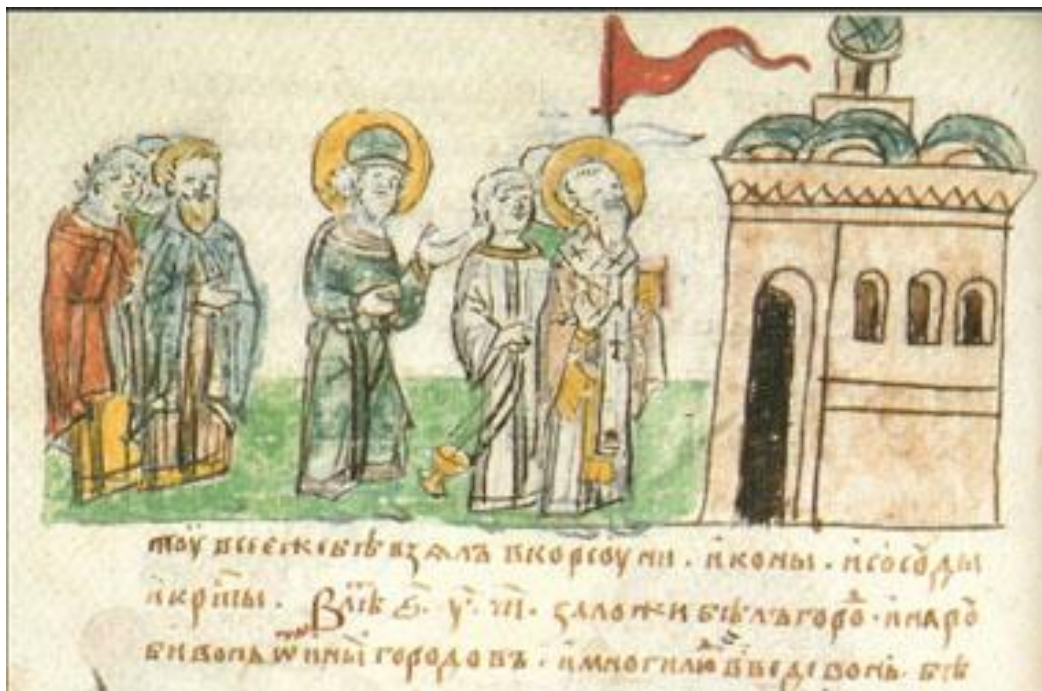 тоу все еже бѣ взялъ в корсоуни . иконы . и сосоды
и крⷭ҇ты . В лѣⷮ ҂ѕ҃ . у҃ . ч҃ . заложи бѣлъгороⷣ . и наро
би вонь ѿ инꙑⷯ городовъ . и много людⷩ҇ введе вонь . бѣ